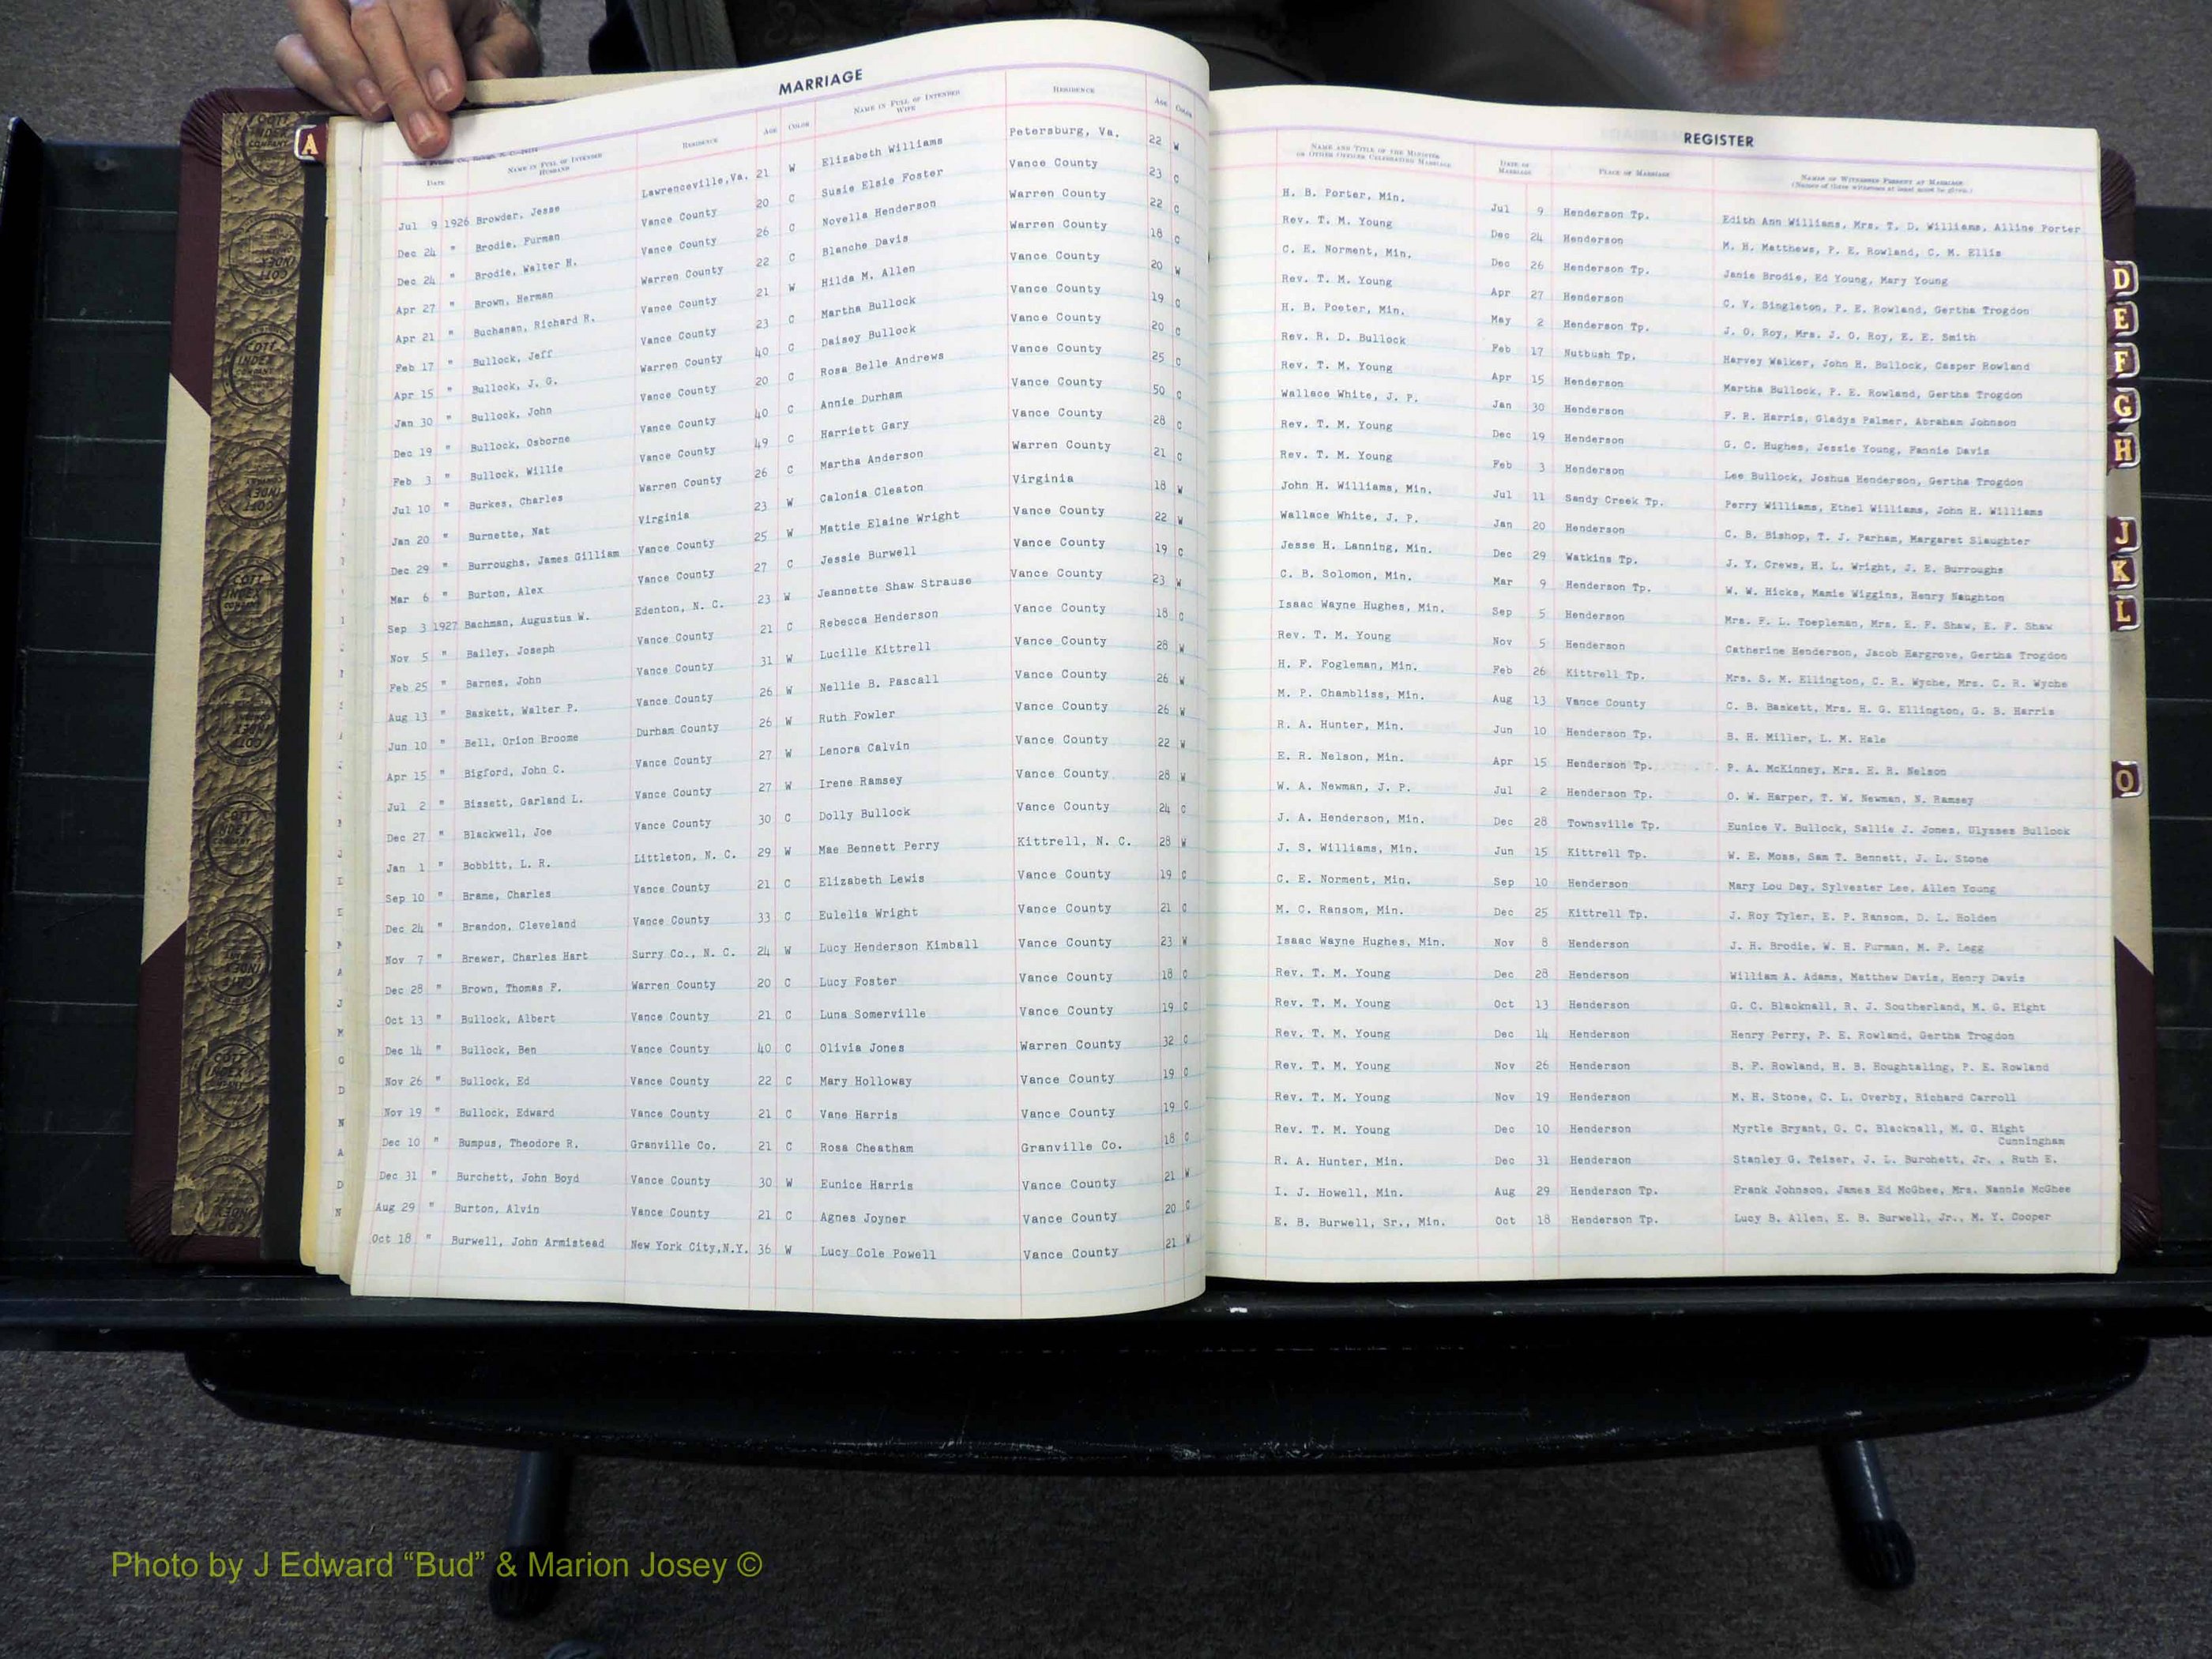 MARRIAGE
DATE NAME IN FULL OF INTENDED HUSBAND RESIDENCE AGE COLOR NAME IN FULL OF INTENDED WIFE RESIDENCE AGE COLOR
Jul 9 1926 Browder, Jesse Lawrenceville,Va. 21 W Elizabeth Williams Petersburg, Va. 22 W
Dec 24 " Brodie, Furman Vance County 20 C Susie Elsie Foster Vance County 23 C
Dec 24 " Brodie, Walter H. Vance County 26 C Novella Henderson Warren County 22 C
Apr 27 " Brown, Herman Warren County 22 C Blanche Davis Warren County 18 C
Apr 21 " Buchanan, Richard R. Vance County 21 W Hilda M. Allen Vance County 20 W
Feb 17 " Bullock, Jeff Vance County 23 C Martha Bullock Vance County 19 C
Apr 15 " Bullock, J. G. Warren County 40 C Daisey Bullock Vance County 20 C
Jan 30 " Bullock, John Vance County 20 C Rosa Belle Andrews Vance County 25 C
Dec 19 " Bullock, Osborne Vance County 40 C Annie Durham Vance County 50 C
Feb 3 " Bullock, Willie Vance County 49 C Harriett Gary Vance County 28 C
Jul 10 " Burkes, Charles Warren County 26 C Martha Anderson Warren County 21 C
Jan 20 " Burnette, Nat Virginia 23 W Calonia Cleaton Virginia 18 W
Dec 29 " Burroughs, James Gilliam Vance County 25 W Mattie Elaine Wright Vance County 22 W
Mar 6 " Burton, Alex Vance County 27 C Jessie Burwell Vance County 19 C
Sep 3 1927 Bachman, Augustus W. Edenton, N. C. 23 W Jeannette Shaw Strause Vance County 23 W
Nov 5 " Bailey, Joseph Vance County 21 C Rebecca Henderson Vance County 18 C
Feb 25 " Barnes, John Vance County 31 W Lucille Kittrell Vance County 28 W
Aug 13 " Baskett, Walter P. Vance County 26 W Nellie B. Pascall Vance County 26 W
Jun 10 " Bell, Orion Broome Durham County 26 W Ruth Fowler Vance County 26 W
Apr 15 " Bigford, John C. Vance County 27 W Lenora Calvin Vance County 22 W
Jul 2 " Bissett, Garland L. Vance County 27 W Irene Ramsey Vance County 28 W
Dec 27 " Blackwell, Joe Vance County 30 C Dolly Bullock Vance County 24 C
Jan 1 " Bobbitt, L. R. Littleton, N. C. 29 W Mae Bennett Perry Kittrell, N. C. 28 W
Sep 10 " Brame, Charles Vance County 21 C Elizabeth Lewis Vance County 19 C
Dec 24 " Brandon, Cleveland Vance County 33 C Eulelia Wright Vance County 21 C
Nov 7 " Brewer, Charles Hart Surry Co., N. C. 24 W Lucy Henderson Kimball Vance County 23 W
Dec 28 " Brown, Thomas F. Warren County 20 C Lucy Foster Vance County 18 C
Oct 13 " Bullock, Albert Vance County 21 C Luna Somerville Vance County 19 C
Dec 14 " Bullock, Ben Vance County 40 C Olivia Jones Warren County 32 C
Nov 26 " Bullock, Ed Vance County 22 C Mary Holloway Vance County 19 C
Nov 19 " Bullock, Edward Vance County 21 C Vane Harris Vance County 19 C
Dec 10 " Bumpus, Theodore R. Granville Co. 21 C Rosa Cheatham Granville Co. 18 C
Dec 31 " Burchett, John Boyd Vance County 30 W Eunice Harris Vance County 21 W
Aug 29 " Burton, Alvin Vance County 21 C Agnes Joyner Vance County 20 C
Oct 18 " Burwell, John Armistead New York City,N.Y. 36 W Lucy Cole Powell Vance County 21 W
REGISTER
NAME AND TITLE OF THE MINISTER OR OTHER OFFICER CELEBRATING MARRIAGE DATE OF MARRIAGE PLACE OF MARRIAGE NAMES OF WITNESSES PRESENT AT MARRIAGE
(Names of three witnesses at least must be given.)
H. B. Porter, Min. Jul 9 Henderson Tp. Edith Ann Williams, Mrs. T. D. Williams, Alline Porter
Rev. T. M. Young Dec 24 Henderson M. H. Matthews, P. E. Rowland, C. M. Ellis
C. E. Norment, Min. Dec 26 Henderson Tp. Janie Brodie, Ed Young, Mary Young
Rev. T. M. Young Apr 27 Henderson C. V. Singleton, P. E. Rowland, Gertha Trogdon
H. B. Poeter, Min. May 2 Henderson Tp. J. O. Roy, Mrs. J. O. Roy, E. E. Smith
Rev. R. D. Bullock Feb 17 Nutbush Tp. Harvey Walker, John H. Bullock, Casper Rowland
Rev. T. M. Young Apr 15 Henderson Martha Bullock, P. E. Rowland, Gertha Trogdon
Wallace White, J. P. Jan 30 Henderson F. R. Harris, Gladys Palmer, Abraham Johnson
Rev. T. M. Young Dec 19 Henderson G. C. Hughes, Jessie Young, Fannie Davis
Rev. T. M. Young Feb 3 Henderson Lee Bullock, Joshua Henderson, Gertha Trogdon
John H. Williams, Min. Jul 11 Sandy Creek Tp. Perry Williams, Ethel Williams, John H. Williams
Wallace White, J. P. Jan 20 Henderson C. B. Bishop, T. J. Parham, Margaret Slaughter
Jesse H. Lanning, Min. Dec 29 Watkins Tp. J. Y. Crews, H. L. Wright, J. E. Burroughs
C. B. Solomon, Min. Mar 9 Henderson Tp. W. W. Hicks, Mamie Wiggins, Henry Naughton
Isaac Wayne Hughes, Min. Sep 5 Henderson Mrs. F. L. Toepleman, Mrs. E. F. Shaw, E. F. Shaw
Rev. T. M. Young Nov 5 Henderson Catherine Henderson, Jacob Hargrove, Gertha Trogdon
H. F. Fogleman, Min. Feb 26 Kittrell Tp. Mrs. S. M. Ellington, C. R. Wyche, Mrs. C. R. Wyche
M. P. Chambliss, Min. Aug 13 Vance County C. B. Baskett, Mrs. H. G. Ellington, G. B. Harris
R. A. Hunter, Min. Jun 10 Henderson Tp. B. H. Miller, L. M. Hale
E. R. Nelson, Min. Apr 15 Henderson Tp. P. A. McKinney, Mrs. E. R. Nelson
W. A. Newman, J. P. Jul 2 Henderson Tp. O. W. Harper, T. W. Newman, N. Ramsey
J. A. Henderson, Min. Dec 28 Townsville Tp. Eunice V. Bullock, Sallie J. Jones, Ulysses Bullock
J. S. Williams, Min. Jun 15 Kittrell Tp. W. E. Moss, Sam T. Bennett, J. L. Stone
C. E. Norment, Min. Sep 10 Henderson Mary Lou Day, Sylvester Lee, Allen Young
M. C. Ransom, Min. Dec 25 Kittrell Tp. J. Roy Tyler, E. P. Ransom, D. L. Holden
Isaac Wayne Hughes, Min. Nov 8 Henderson J. H. Brodie, W. H. Furman, M. P. Legg
Rev. T. M. Young Dec 28 Henderson William A. Adams, Matthew Davis, Henry Davis
Rev. T. M. Young Oct 13 Henderson G. C. Blacknall, R. J. Southerland, M. G. Hight
Rev. T. M. Young Dec 14 Henderson Henry Perry, P. E. Rowland, Gertha Trogdon
Rev. T. M. Young Nov 26 Henderson B. F. Rowland, H. B. Houghtaling, P. E. Rowland
Rev. T. M. Young Nov 19 Henderson M. H. Stone, C. L. Overby, Richard Carroll
Rev. T. M. Young Dec 10 Henderson Myrtle Bryant, G. C. Blacknall, M. G. Hight
Cunningham
R. A. Hunter, Min. Dec 31 Henderson Stanley G. Teiser, J. L. Burchett, Jr. , Ruth E.
I. J. Howell, Min. Aug 29 Henderson Tp. Frank Johnson, James Ed McGhee, Mrs. Nannie McGhee
E. B. Burwell, Sr., Min. Oct 18 Henderson Tp. Lucy B. Allen, E. B. Burwell, Jr., M. Y. Cooper
A
D
E
F
G
H
J
K
L
O
COTT INDEX COMPANY
Photo by J Edward “Bud” & Marion Josey ©